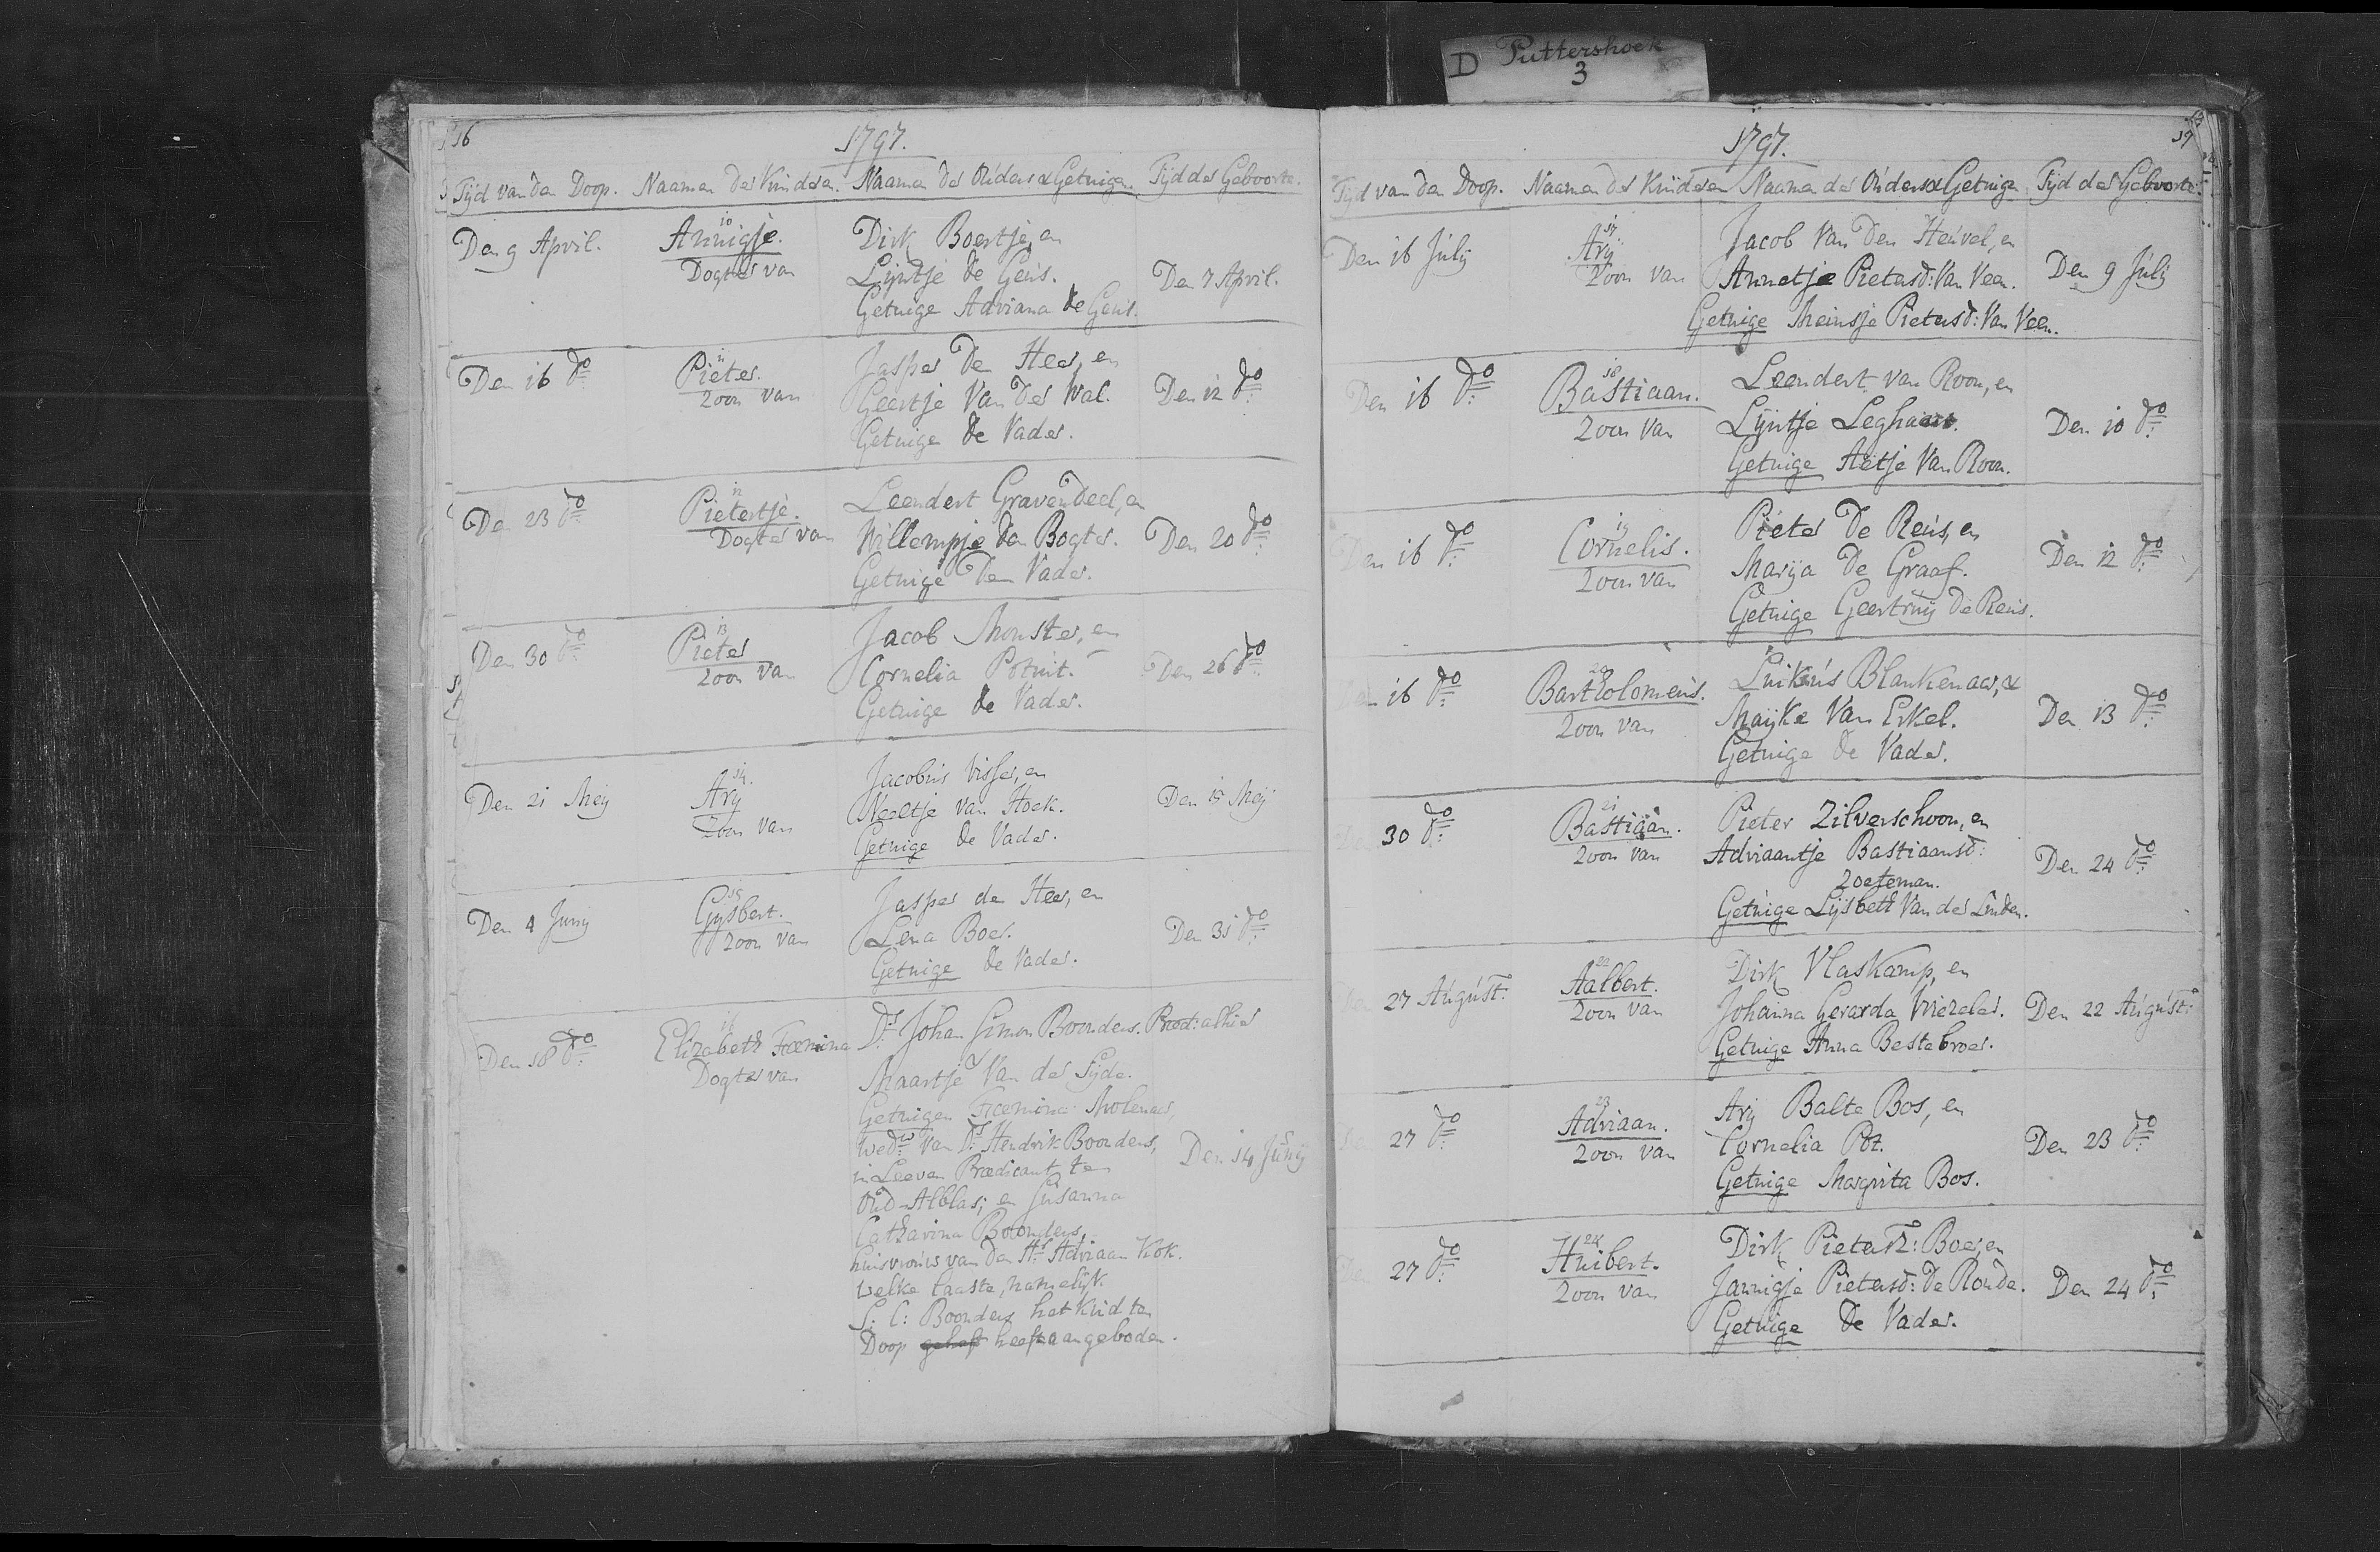 D Puttershoek
3
16
1797.
Tijd van den Doop. Naamen der Kinderen. Naamen der Ouders & Getuigen. Tijd der Geboorte.
Den 9 April.
10
Annigje.
Dogter van
Dirk Boertje, en
Lijntje de Geus.
Getuige Adriana de Geus.
Den 7 April.
Den 16 do
11
Pieter.
Zoon van
Jasper Den Heer, en
Geertje Van der Wal.
Getuige de Vader.
Den 12 do
Den 23 do
12
Pietertje.
Dogter van
Leendert Gravendeel, en
Willempje den Bogter.
Getuige Den Vader.
Den 20 do
Den 30 do
13
Pieter
Zoon van
Jacob Monster, en
Cornelia Potuit.
Getuige de Vader.
Den 26 do
Den 21 Meij
14.
Arij
Zoon van
Jacobus Visser, en
Neeltje van Hoek.
Getuige de Vader.
Den 15 Meij
Den 4 Junij
15
Gijsbert.
Zoon van
Jasper den Heer, en
Lena Boer.
Getuige de Vader.
Den 31 do
Den 18 do
16
Elizabeth Foemina
Dogter van
Ds Johan Simon Boonders. Pred: alhier
Maartje Van der Sijde.
Getuigen Foemina Molenaer,
Wedw Van Ds Hendrik Boonders,
in Leeven Praedicant ten
Oud-Alblas; en Susanna
Catharina Boonders,
huisvrouw van den Hr Adriaan Kok.
welke laaste, namelijk
S: C: Boonders het Kind ten
Doop gehest heeft aangeboden.
Den 14 Junij
17
1797.
Tijd van den Doop. Naamen der Kinderen Naamen der Ouders & Getuigen Tijd der Geboorte.
Den 16 Julij
17
Arij
Zoon van
Jacob Van Den Heuvel, en
Annetje Pietersd: Van Veen.
Getuige Meinsje Pietersd: Van Veen.
Den 9 Julij
Den 16 do
18
Bastiaan.
Zoon van
Leendert van Roon, en
Lijntje Leghaert.
Getuige Aetje Van Roon.
Den 10 do
Den 16 do
19
Cornelis.
Zoon van
Pieter De Reus, en
Marija De Graaf.
Getuige Geertruij De Reus.
Den 12 do
Den 16 do
20
Bartholomeus.
Zoon van
Luikus Blankenaer, &
Maijke Van Erkel.
Getuige de Vader.
Den 13 do
Den 30 do
21
Bastiaan.
Zoon van
Pieter Zilverschoon, en
Adriaantje Bastiaansd:
Zoeteman.
Getuige Lijsbeth Van der Linden.
Den 24 do
Den 27 August:
22
Aalbert.
Zoon van
Dirk Vlaskamp, en
Johanna Gerarda Wiezeler.
Getuige Anna Bestebroer.
Den 22 August:
Den 27 do
23
Adriaan.
Zoon van
Arij Balte Bos, en
Cornelia Pot.
Getuige Margrita Bos.
Den 23 do
Den 27 do
24
Huibert.
Zoon van
Dirk Pietersz: Boer, en
Jannigje Pietersd: De Ronde.
Getuige de Vader.
Den 24 do